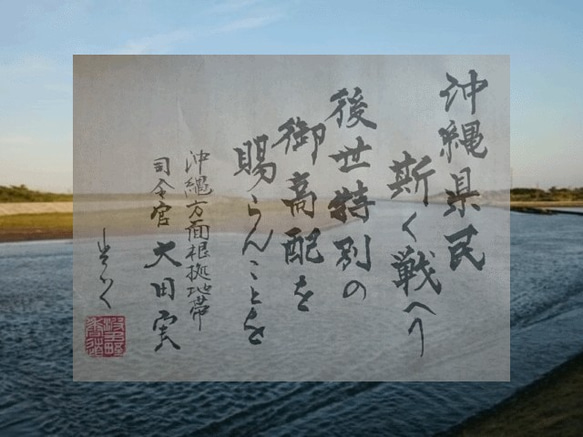 沖縄県民
斯く戦へり
後世特別の
御高配を
賜らんことを
沖縄方面根拠地帯
司令官 大田実